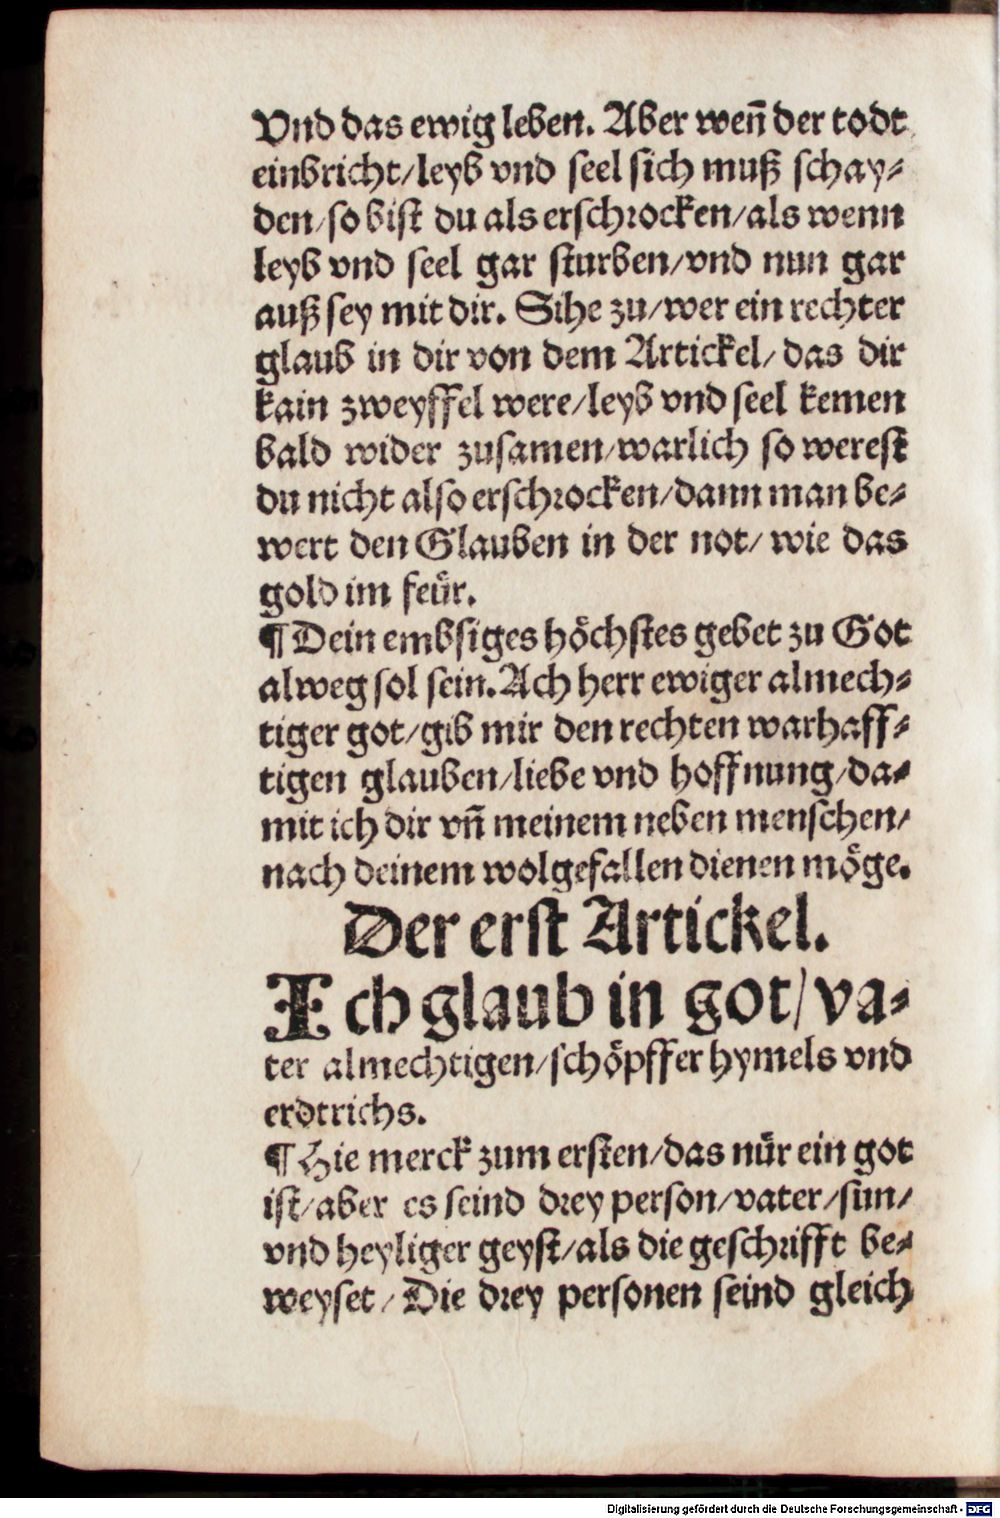 Vnd das ewig leben. Aber weñ der todt
einbricht/leyb vnd seel sich muß schay⸗
den/so bist du als erschrocken/als wenn
leyb vnd seel gar sturben/vnd nun gar
auß sey mit dir. Sihe zu/wer ein rechter
glaub in dir von dem Artickel/das dir
kain zweyffel were/leyb vnd seel kemen
bald wider zusamen/warlich so werest
du nicht also erschrocken/dann man be⸗
wert den Glauben in der not/wie das
gold im feür.
¶ Dein embsiges höchstes gebet zu Got
alweg sol sein. Ach herr ewiger almech⸗
tiger got/gib mir den rechten warhaff⸗
tigen glauben/liebe vnd hoffnung/da⸗
mit ich dir vñ meinem neben menschen/
nach deinem wolgefallen dienen möge.
Der erst Artickel.
Ich glaub in got/va⸗
ter almechtigen/schöpffer hymels vnd
erdtrichs.
¶ Hie merck zum ersten/das nür ein got
ist/aber es seind drey person/vater/sun/
vnd heyliger geyst/als die geschrifft be⸗
weyset/Die drey personen seind gleich
Digitalisierung gefördert durch die Deutsche Forschungsgemeinschaft - DFG